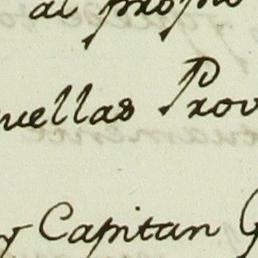 al propio
uellas Prov
y Capitan G